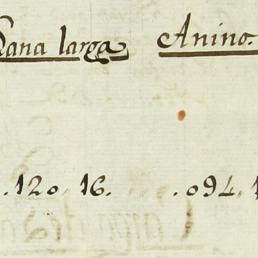 Lana larga Anino.
.120 16. .094.1